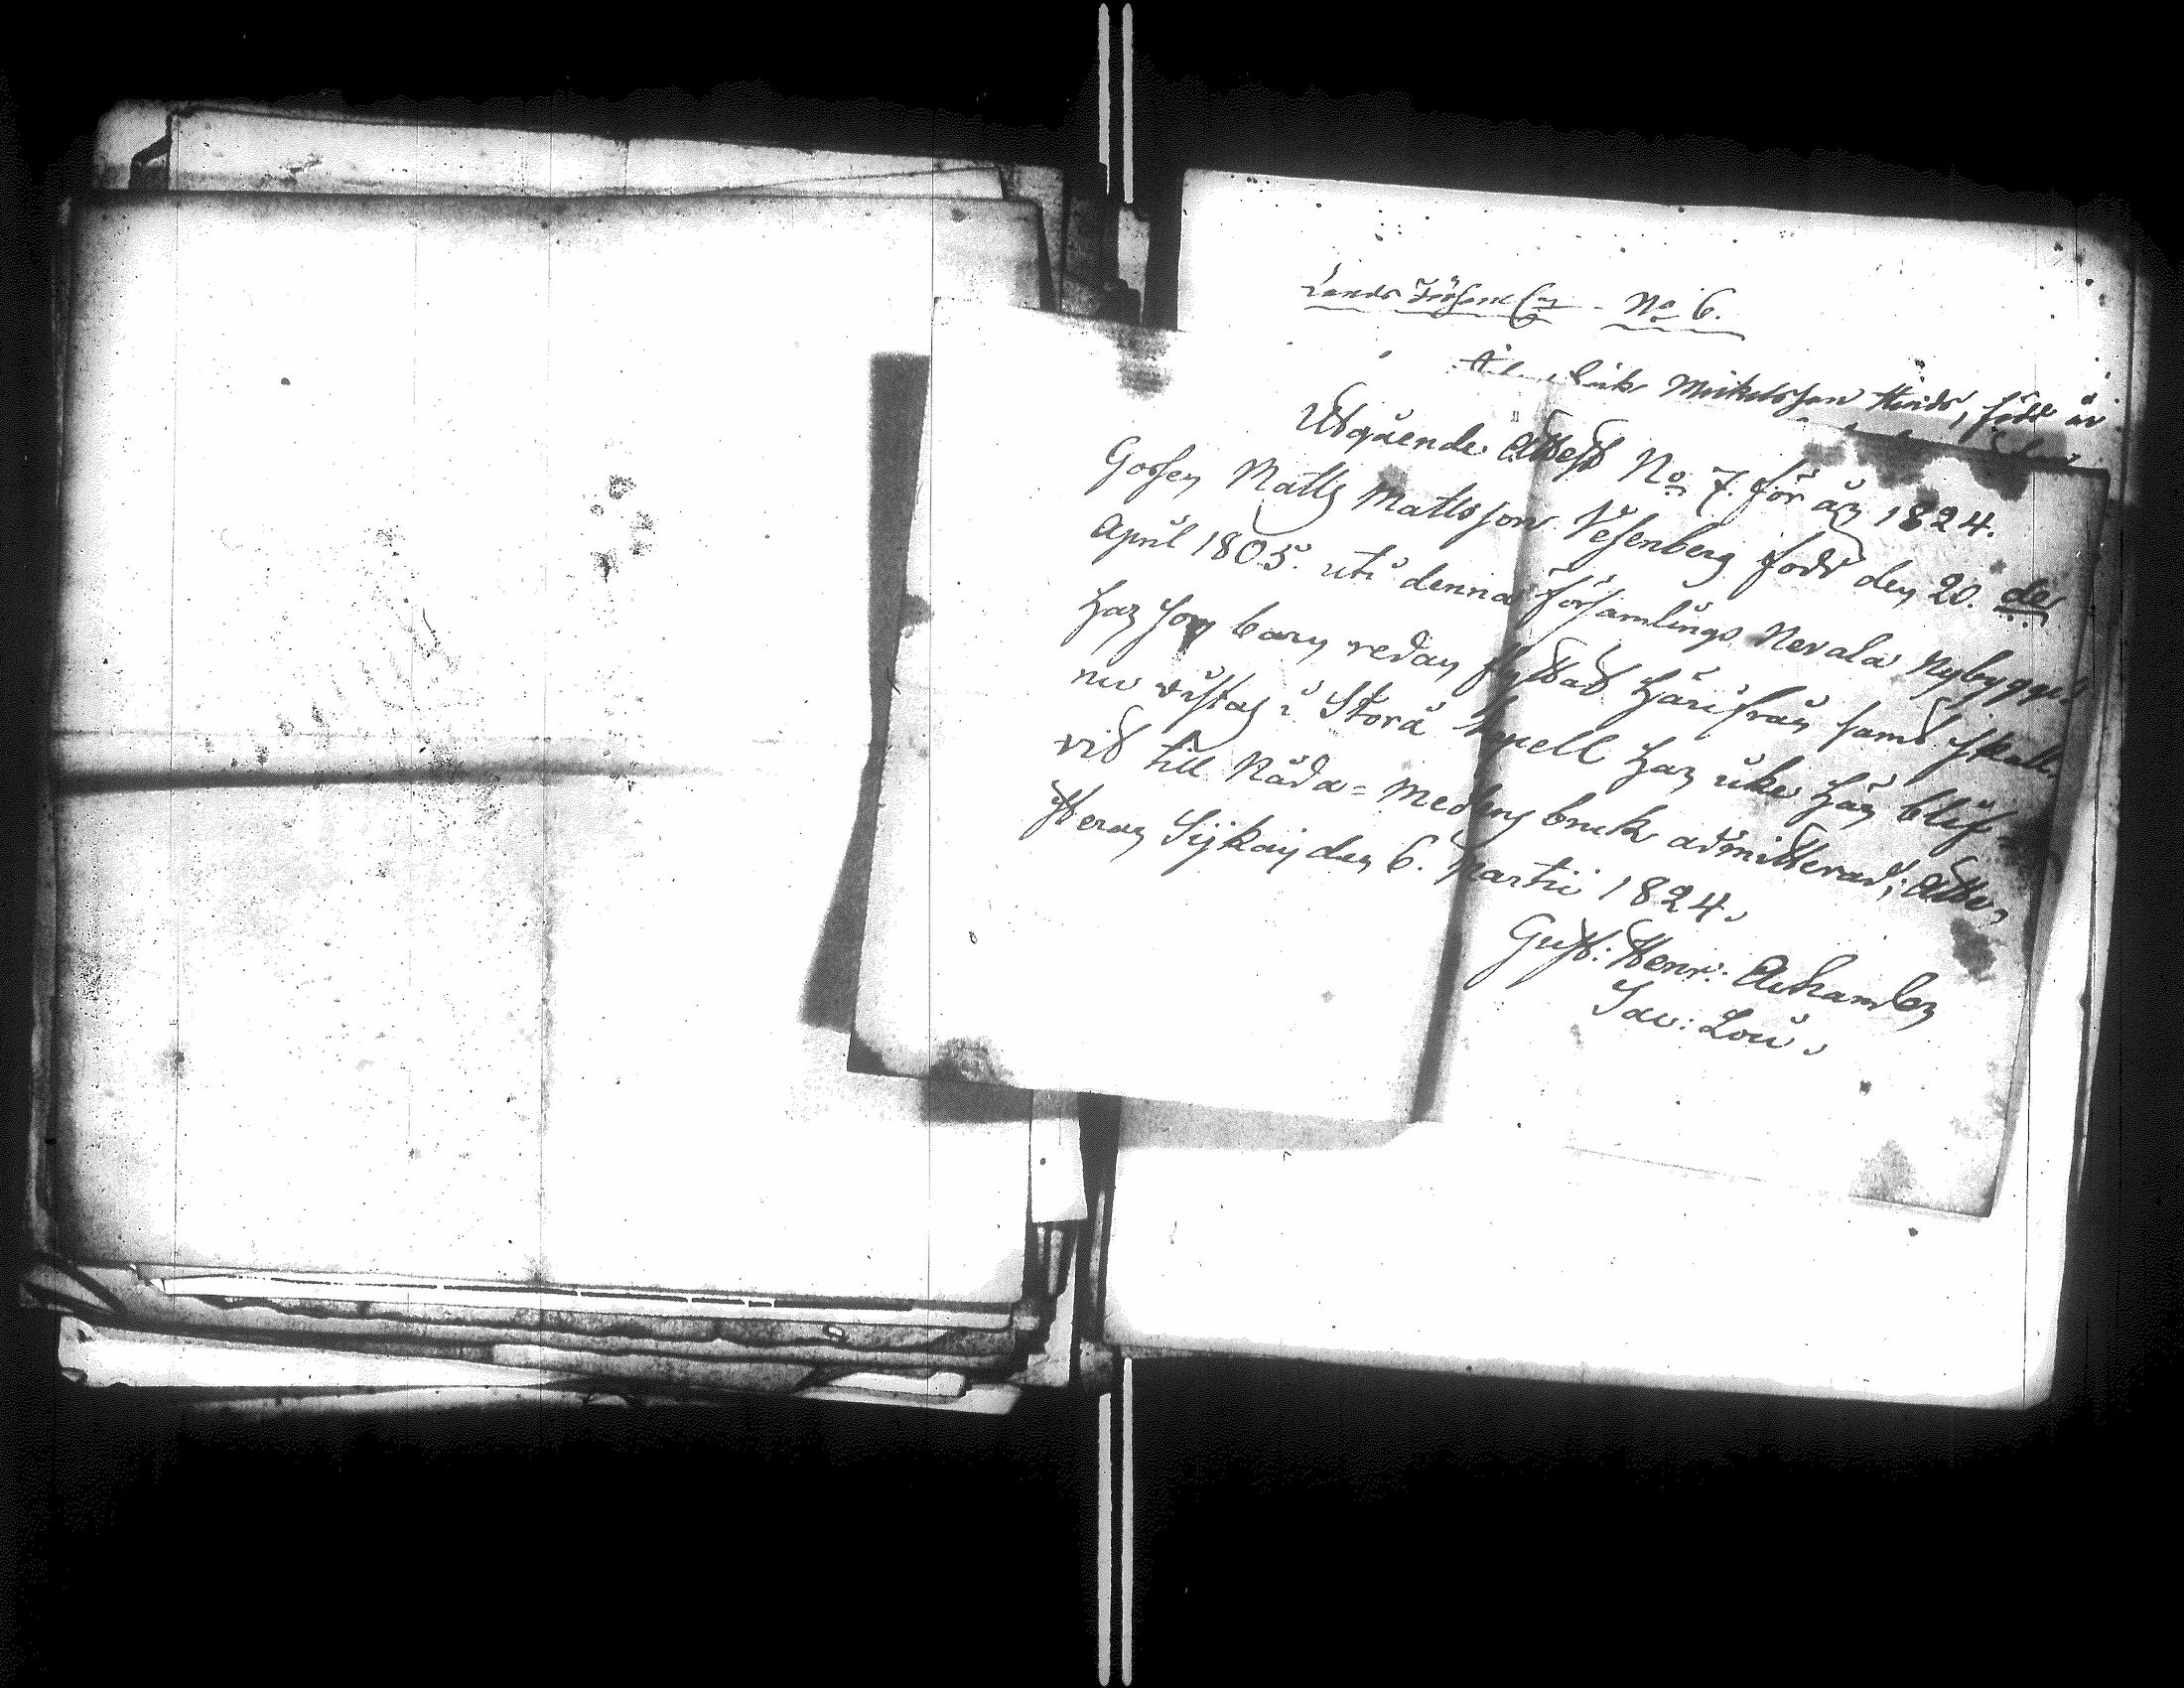 No 6.
Mickelsson född år
Utgående Attest No 7. för år 1824.
Gossen Matts Mattsson Vesenberg född den 20. de
April 1805. uti denna församlings Nevala Nybygge
har som barn redan flyttat härifrån samt skall
nu vistas i Storå Capell har icke här blif
vit till Nåda=medlens bruk admitterad; Atte
sterar Sijkais den 6. Martii 1824.
Gust: Henr:
Sac: Loci.